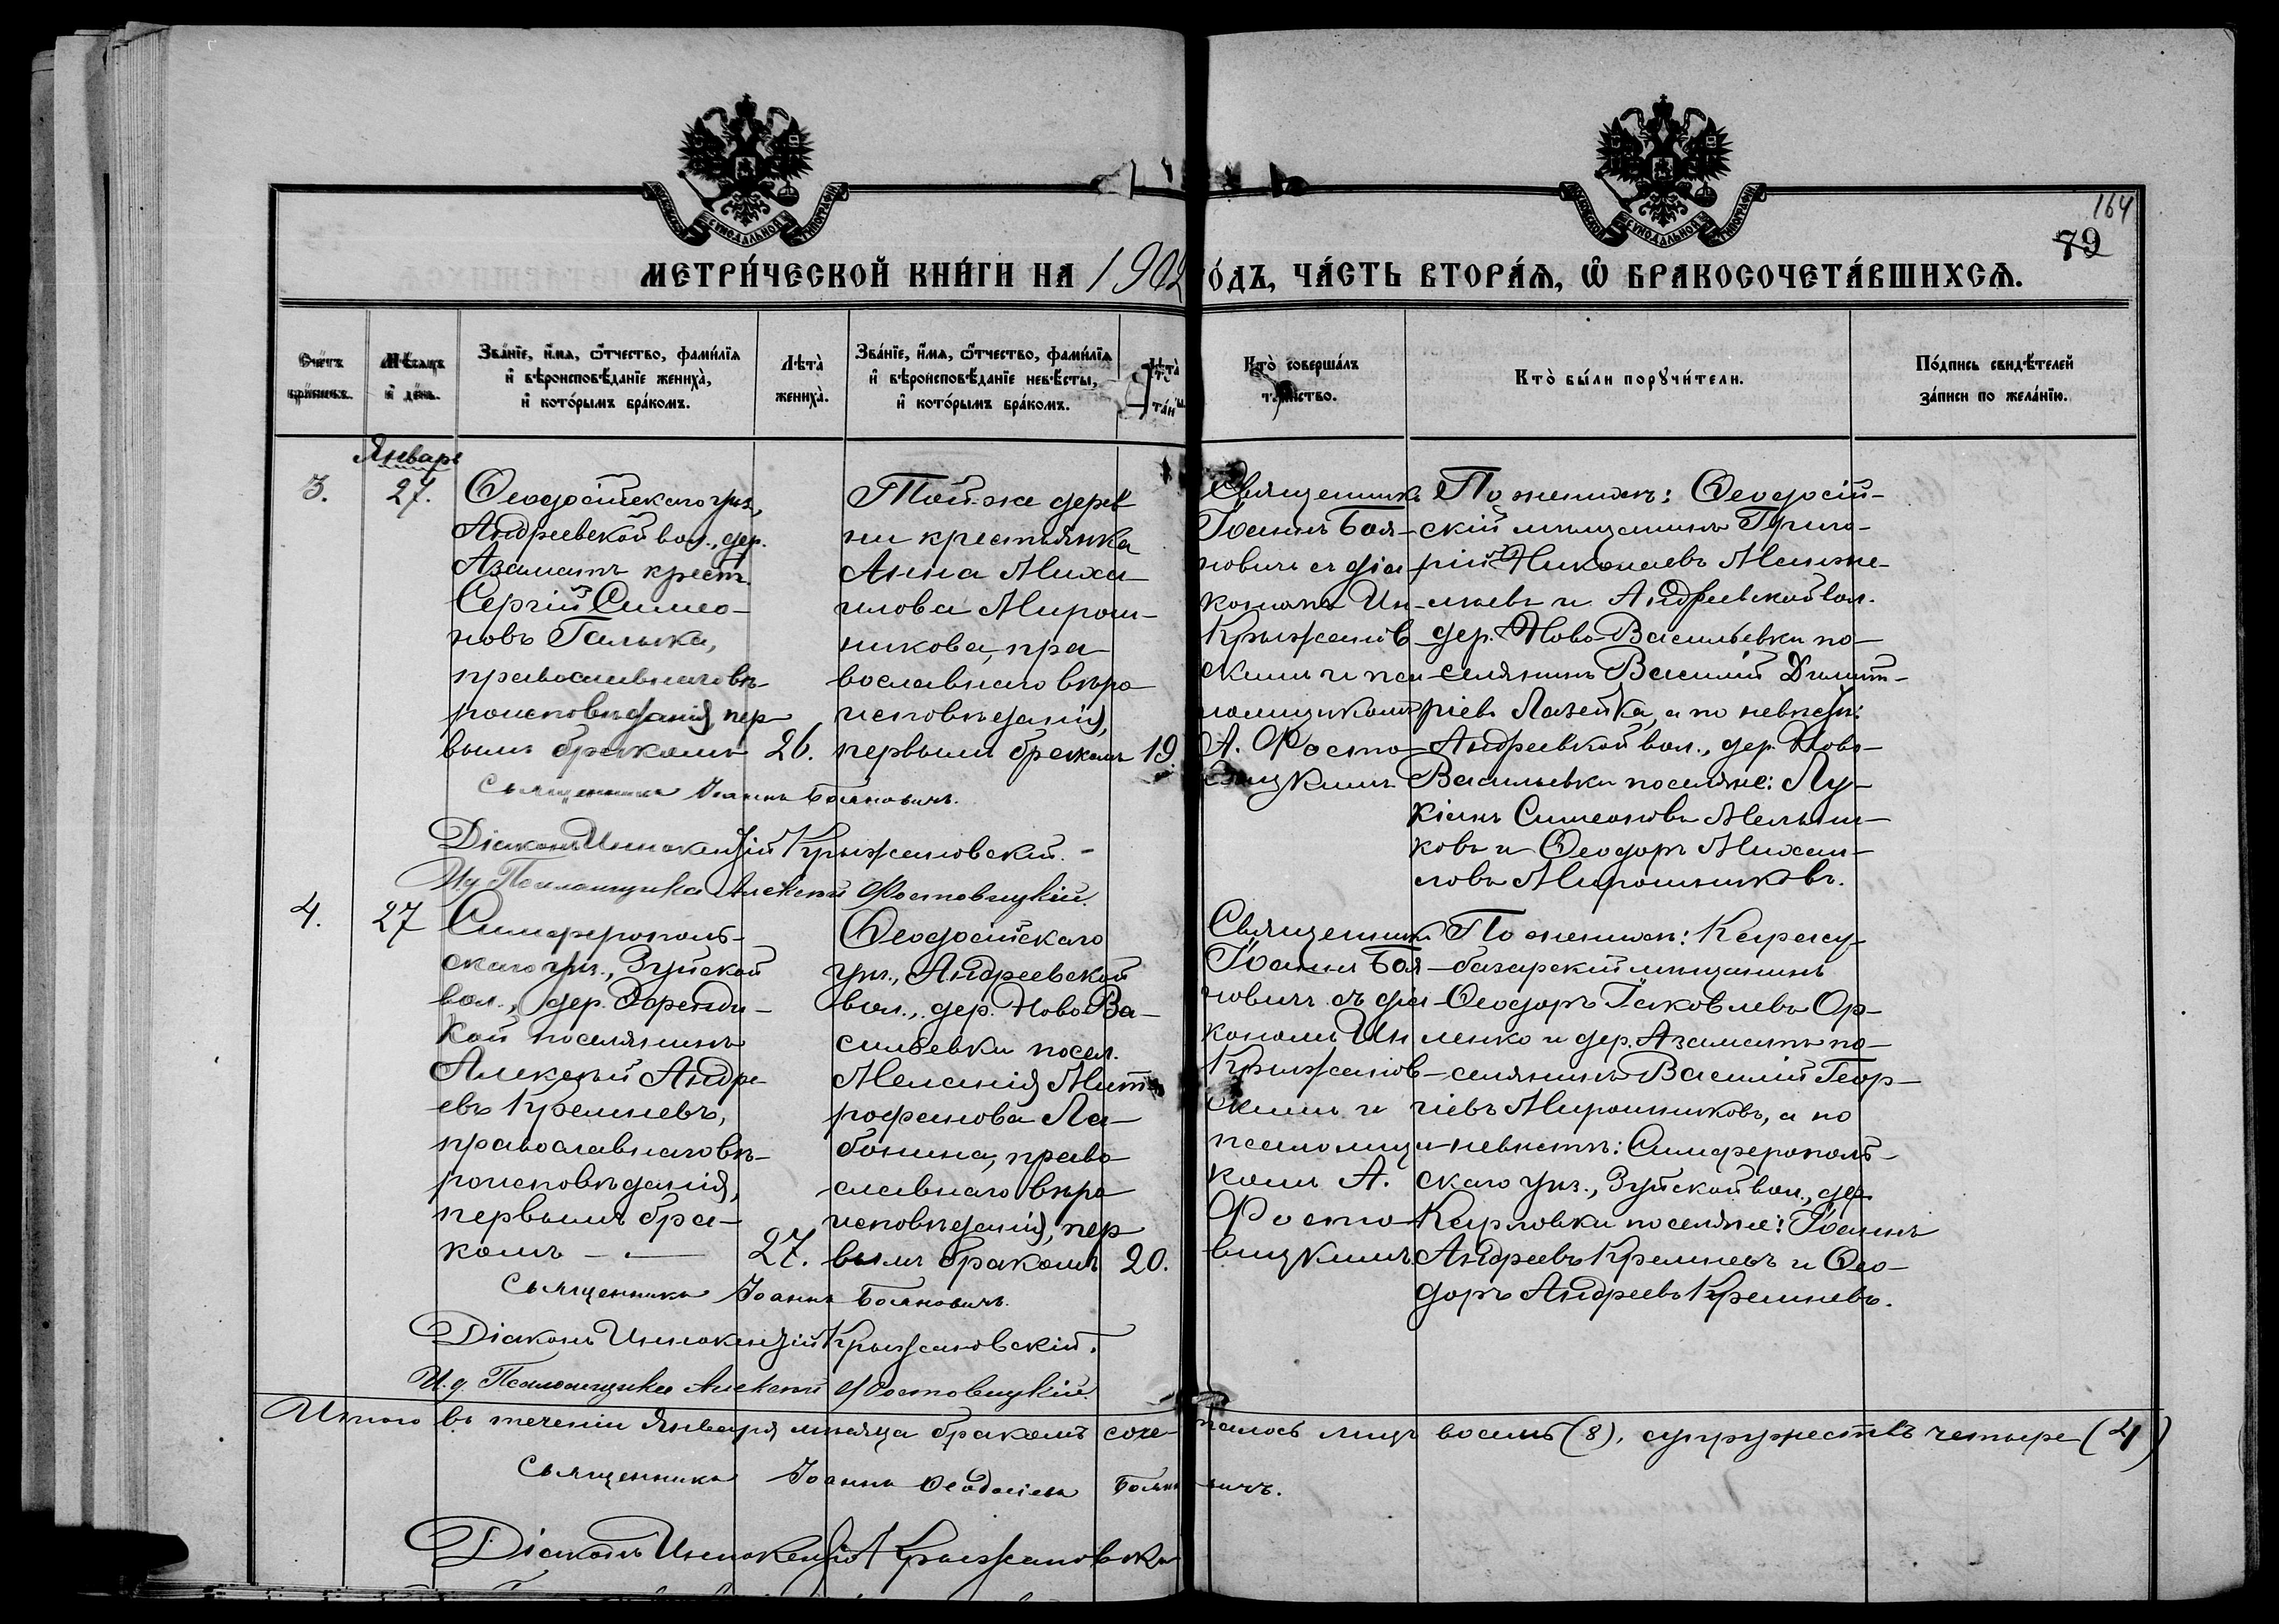 164
79
МЕТРИ́ЧЕСКОЙ КНИ́ГИ НА 1902 ГО́ДЪ, ЧА́СТЬ ВТОРА́Ѧ, Ѡ҆ БРАКОСОЧЕТА́ВШИХСѦ.
Счетъ
браковъ.
Мѣсяцъ
и день.
Зва́нїе, и҆́мѧ, ѻ҆́тчество, фами́лїѧ
и҆ вѣроисповѣ́данїе жениха̀,
и҆ кото́рымъ бра́комъ.
Лѣта̀
жениха̀.
Зва́нїе, и҆́мѧ, ѻ҆́тчество, фами́лїѧ
и҆ вѣроисповѣ́данїе невѣ́сты,
и҆ кото́рымъ бра́комъ.
Лѣта̀
Кто̀ соверша́лъ
таинство.
Кто̀ бы́ли порꙋчи́тели.
По́дпись свидѣ́телей
за́писи по жела́нїю.
Январь
3.
27.
Ѳеодосійскаго уѣз.,
Андреевской вол., дер.
Азаматъ крест.
Сергій Симео-
новъ Галыка,
православнаго вѣ-
роисповѣданія, пер-
вымъ бракомъ
26.
Той-же дерев
ни крестьянка
Анна Миха-
илова Мирош-
никова, пра-
вославнаго вѣро
исповѣданія,
первымъ бракомъ
19.
Священникъ
Іоаннъ Боя-
новичъ съ діа
кономъ Ин.
Крыжанов-
скимъ и пса
ломщикомъ
А. Фосто-
вицкимъ
По женихѣ: Ѳеодосій-
скій мѣщанинъ Григо-
рій Николаевъ Манже-
лѣевъ и Андреевской вол.
дер. Ново-Васильевки по-
селянинъ Василій Димит-
ріевъ Лазейка, а по невѣстѣ:
Андреевкой вол., дер. Ново-
Васильевки поселяне: Лу-
кіанъ Симеоновъ Мельни-
ковъ и Ѳеодоръ Михаи-
ловъ Мирошниковъ.
Священникъ Іоаннъ Бояновичъ.
Діаконъ Иннокентій Крыжановскій.-
И.д. Псаломщика Алексѣй Фостовицкій.
4.
27
Симферополь-
скаго уѣз., Зуйской
вол., дер. Эфенди-
кой поселянинъ
Алексѣй Андре-
евъ Кремневъ,
православнаго вѣ-
роисповѣданія,
первымъ бра-
комъ - -
27.
Ѳеодосійскаго
уѣз., Андреевской
вол., дер. Ново-Ва-
сильевки посел.
Меланія Мит-
рофанова Ла-
бонина, право
славнаго вѣро
исповѣданія, пер
вымъ бракомъ
20.
Священникъ
Іоаннъ Боя-
новичъ съ діа
кономъ Ин
Крыжанов-
скимъ и
псаломщи-
комъ А.
Фосто-
вицкимъ.
По женихѣ: Карасу-
базарскій мѣщанинъ
Ѳеодоръ Іаковлевъ Ор-
ленко и дер. Азаматъ по-
селянинъ Василій Геор-
гіевъ Мирошниковъ, а по
невѣстѣ: Симферополь-
скаго уѣз., Зуйской вол., дер.
Карловки поселяне: Іоаннъ
Андреевъ Кремневъ и Ѳео-
доръ Андреевъ Кремневъ.
Священникъ Іоаннъ Бояновичъ.
Діаконъ Иннокентій Крыжановскій.
И.д. Псаломщика Алексѣй Фостовицкій.
Итого въ теченіи Января мѣсяца бракомъ сочеталось лицъ восемь (8), супружествъ четыре (4)
Священникъ Іоаннъ Ѳеодосіевъ Бояновичъ.
Діаконъ Иннокентій Крыжановскі